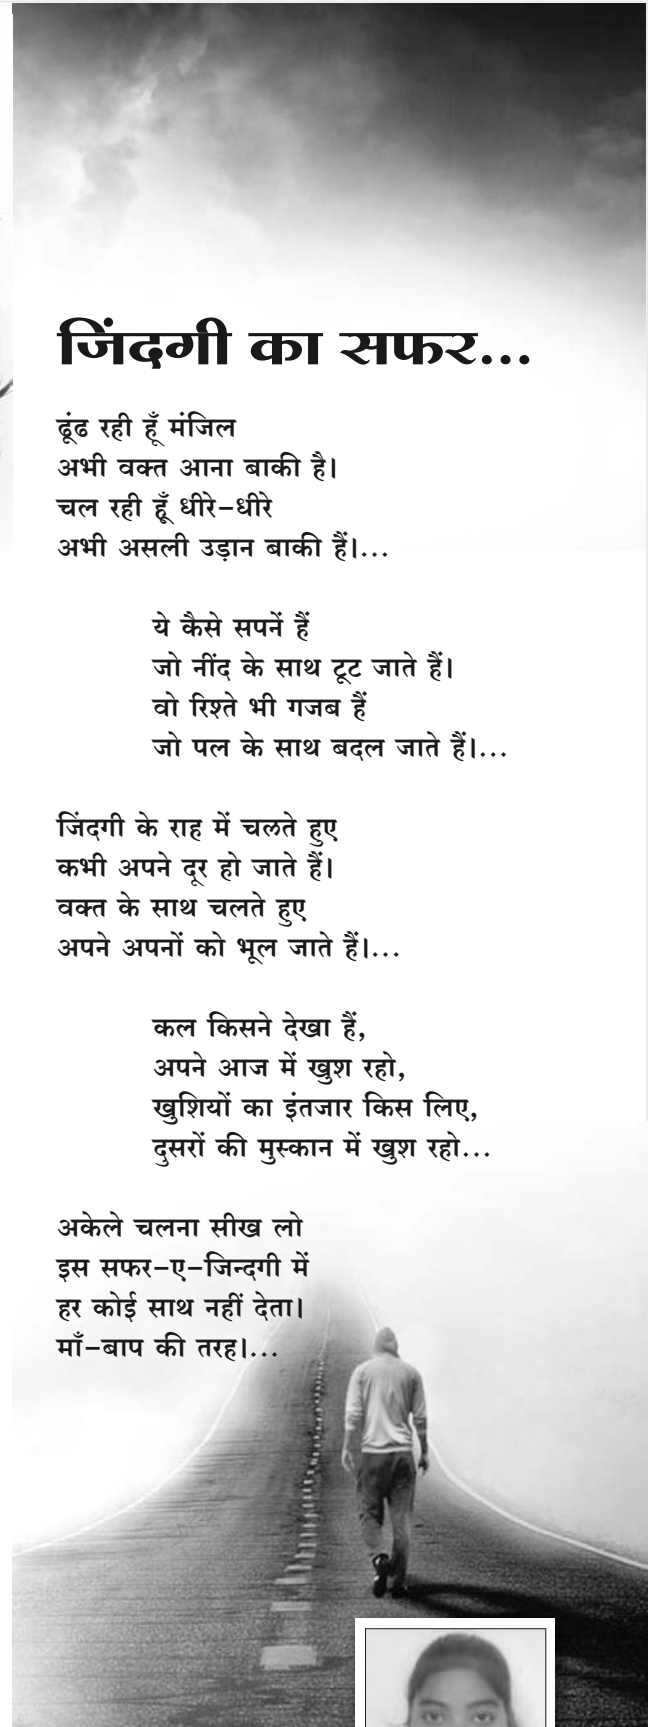 जिंदगी का सफर...
ढूंढ रही हूँ मंजिल
अभी वक्त आना बाकी है।
चल रही हूँ धीरे-धीरे
अभी असली उड़ान बाकी हैं।...
ये कैसे सपनें हैं
जो नींद के साथ टूट जाते हैं।
वो रिश्ते भी गजब हैं
जो पल के साथ बदल जाते हैं।...
जिंदगी के राह में चलते हुए
कभी अपने दूर हो जाते हैं।
वक्त के साथ चलते हुए
अपने अपनों को भूल जाते हैं।...
कल किसने देखा हैं,
अपने आज में खुश रहो,
खुशियों का इंतजार किस लिए,
दुसरों की मुस्कान में खुश रहो...
अकेले चलना सीख लो
इस सफर-ए-जिन्दगी में
हर कोई साथ नहीं देता।
माँ-बाप की तरह।...